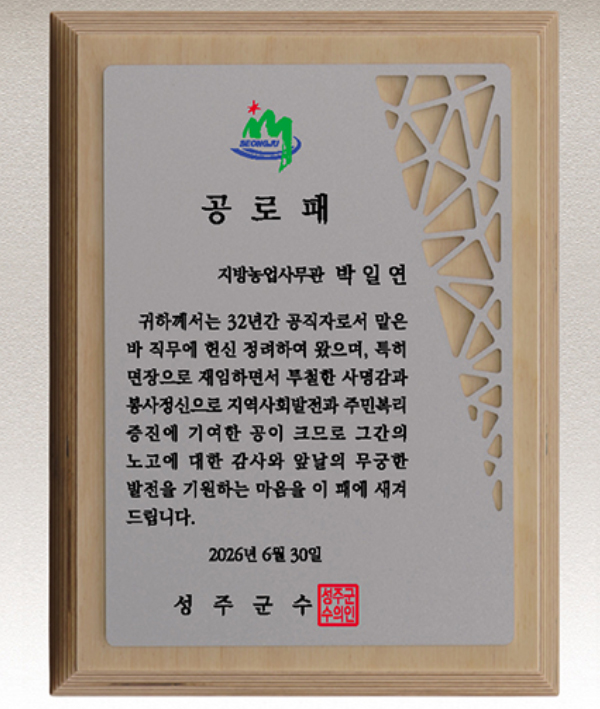 SEONGJU
공로패
지방농업사무관 박일연
귀하께서는 32년간 공직자로서 맡은
바 직무에 헌신 정려하여 왔으며, 특히
면장으로 재임하면서 투철한 사명감과
봉사정신으로 지역사회발전과 주민복리
증진에 기여한 공이 크므로 그간의
노고에 대한 감사와 앞날의 무궁한
발전을 기원하는 마음을 이 패에 새겨
드립니다.
2026년 6월 30일
성주군수
성주군
수의인